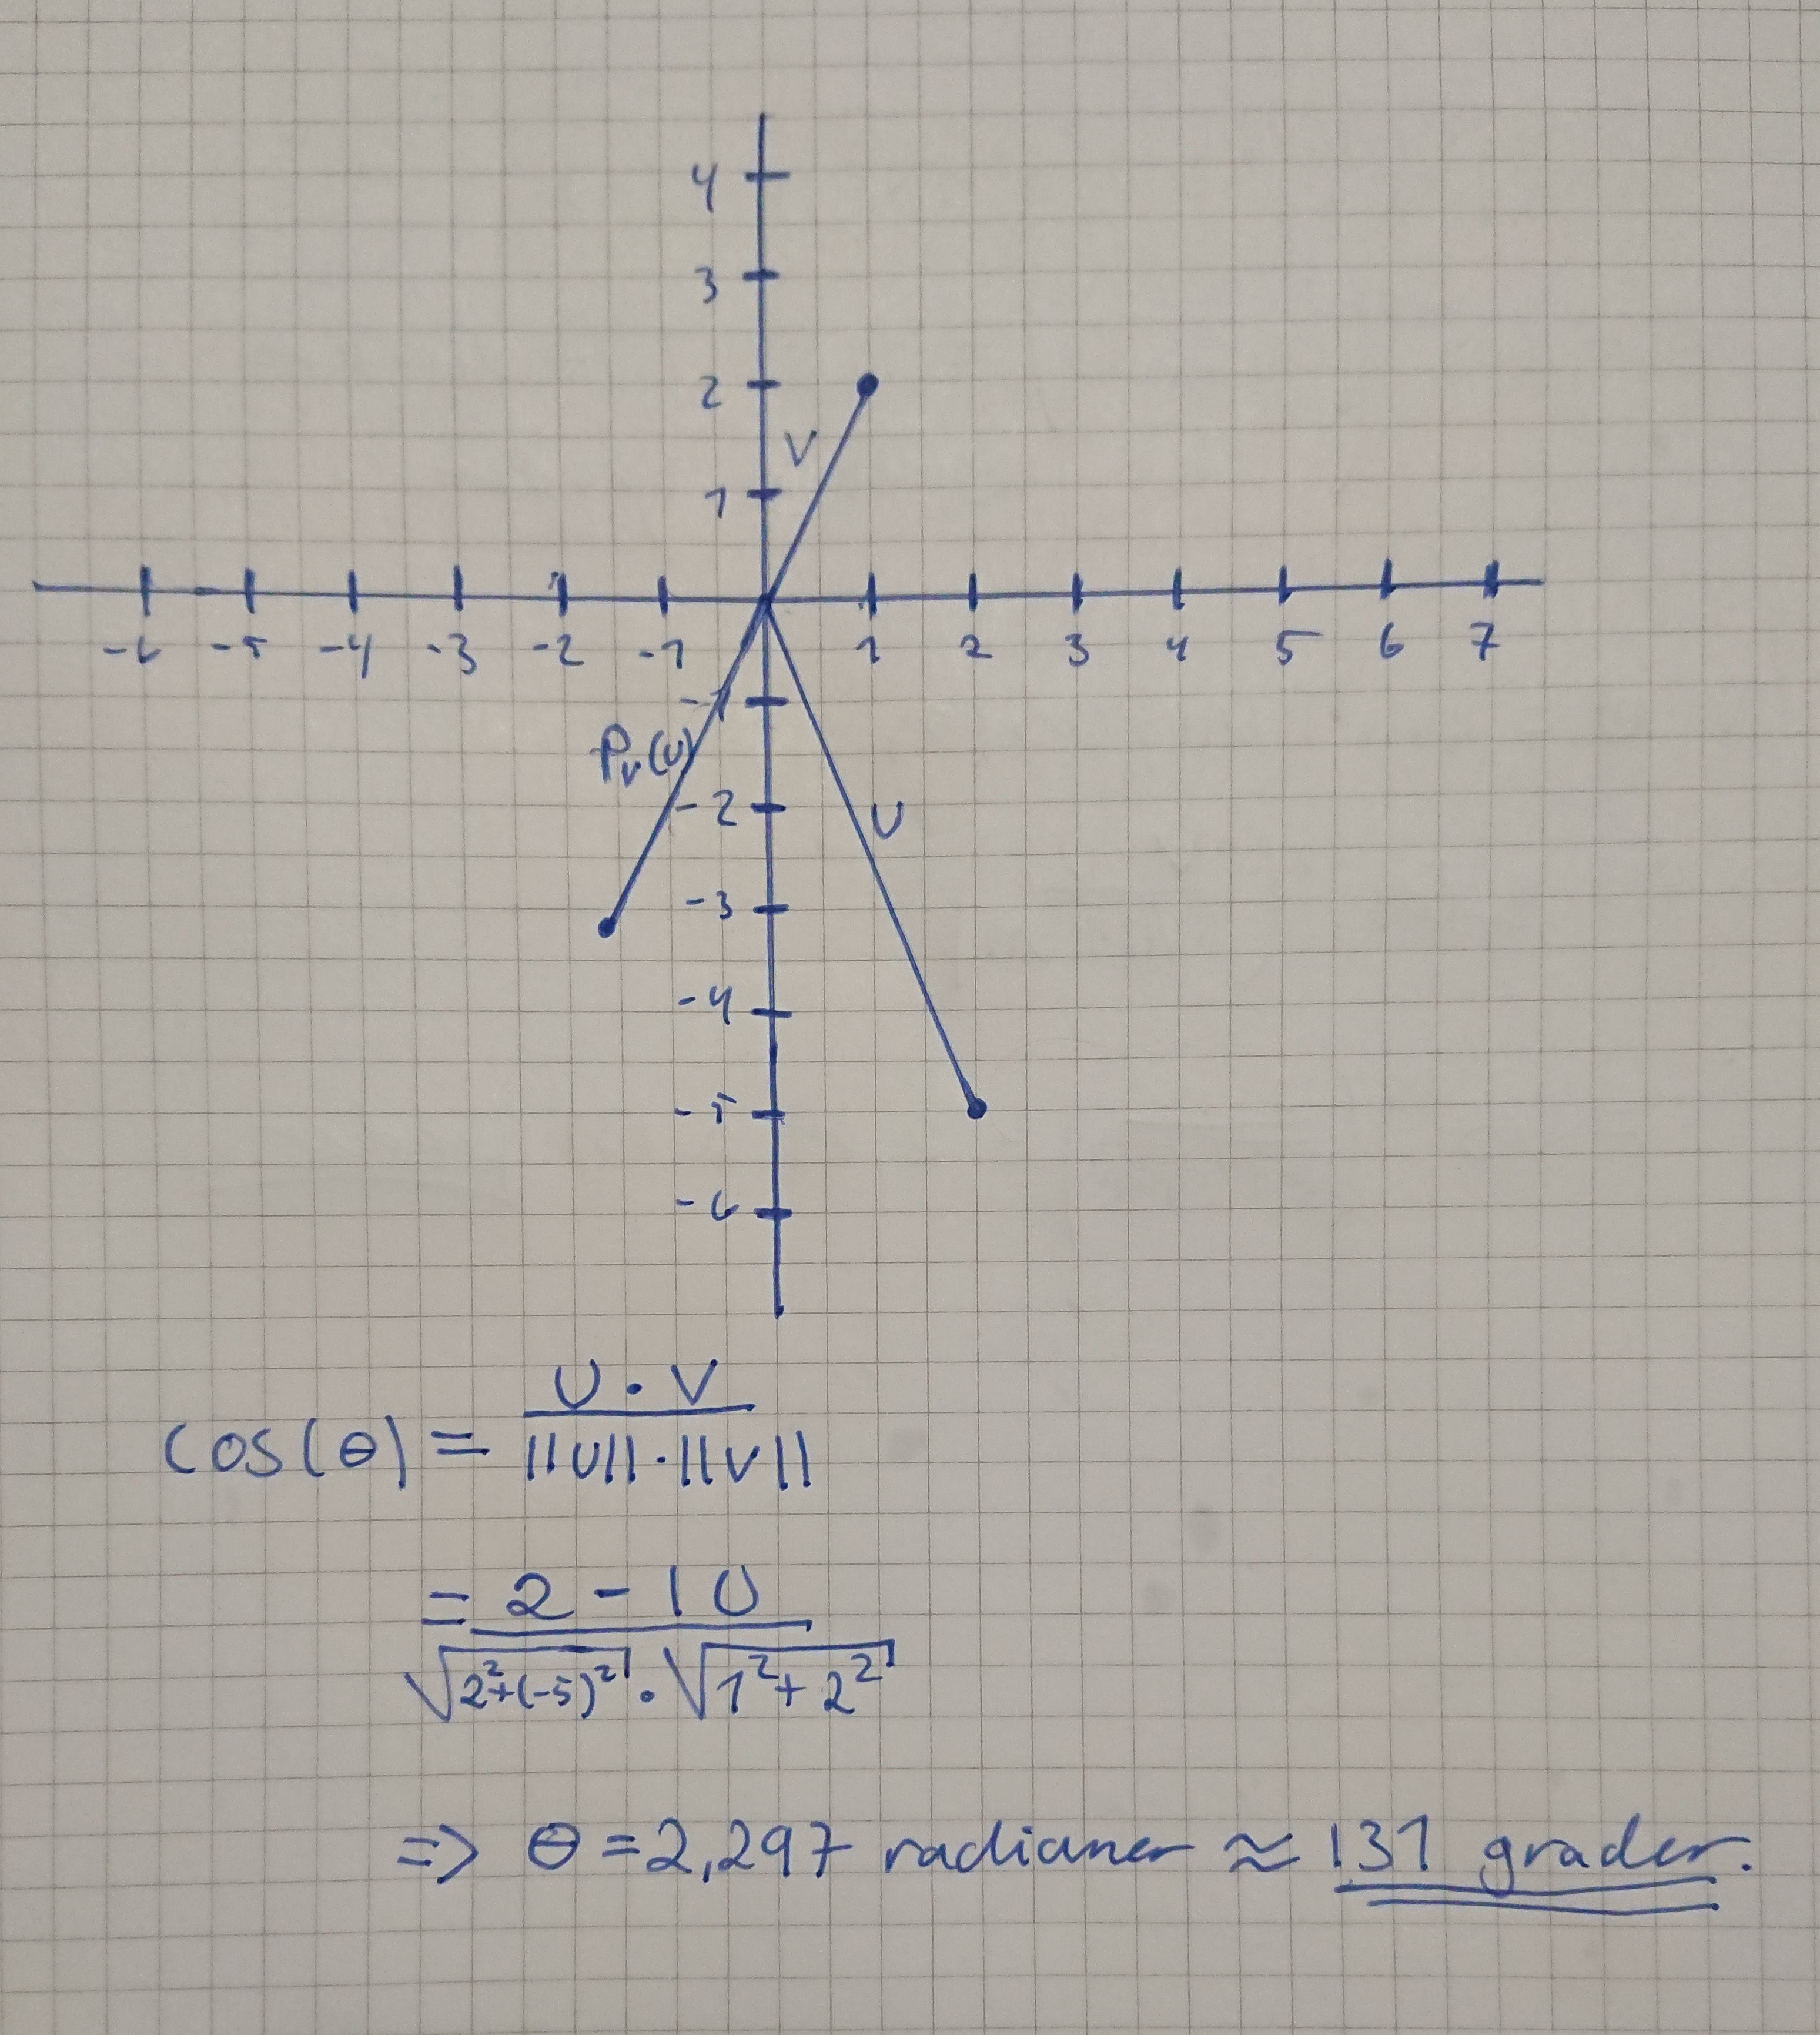 4
3
2
V
1
-6 -5 -4 -3 -2 -1 1 2 3 4 5 6 7
-1
Pv(U)
-2
U
-3
-4
-5
-6
cos(θ) = U · V / ||U|| · ||V||
= 2 - 10 / √(2²+(-5)²) · √(1²+2²)
=> θ = 2,297 radianer ≈ 131 grader.